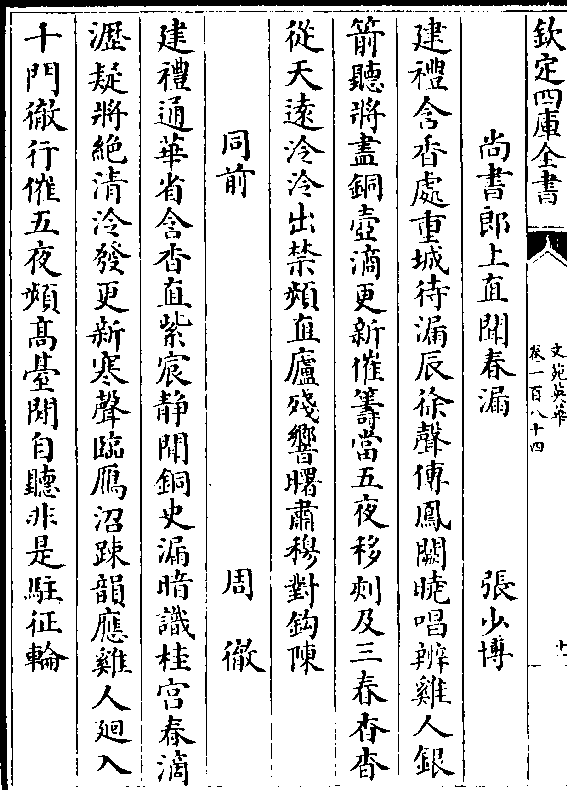 欽定四庫全書
文苑英華
卷一百八十四
尚書郎上直聞春漏 張少博
建禮含香處重城待漏辰徐聲傳鳳闕曉唱辨雞人銀
箭聽將盡銅壺滴更新催籌當五夜移刻及三春杳杳
從天遠泠泠出禁頻直廬殘響曙肅穆對鈎陳
同前 周徹
建禮通華省含香直紫宸静聞銅史漏暗識桂宫春滴
瀝疑將絶清泠發更新寒聲臨鴈沼踈韻應雞人廻入
千門徹行催五夜頻髙臺閒自聽非是駐征輪